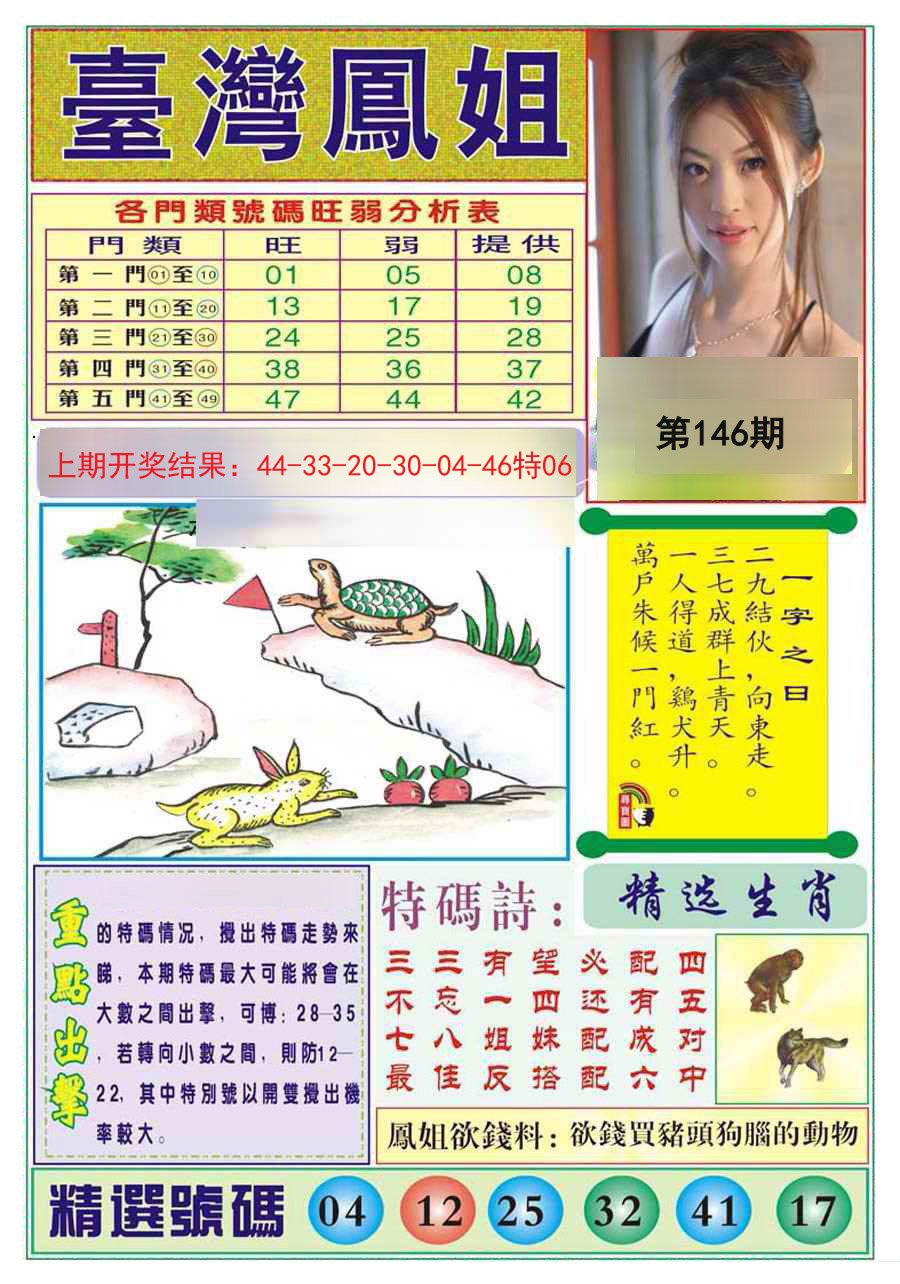 臺灣鳳姐
各門類號碼旺弱分析表
門類 旺 弱 提供
第一門01至10 01 05 08
第二門11至20 13 17 19
第三門21至30 24 25 28
第四門31至40 38 36 37
第五門41至49 47 44 42
第146期
上期开奖结果：44-33-20-30-04-46特06
一字之曰
二九結伙,向東走。
三七成群上青天。
一人得道,鷄犬升。
萬戶朱候一門紅。
尋寶圖
重點出擊
的特碼情况，攪出特碼走勢來
睇，本期特碼最大可能將會在
大數之間出擊，可博：28—35
，若轉向小數之間，則防12—
22，其中特別號以開雙攪出機
率較大。
特碼詩：
三三有望必配四
不忘一四还有五
七八姐妹配成对
最佳反搭配六中
精选生肖
鳳姐欲錢料：欲錢買豬頭狗腦的動物
精選號碼 04 12 25 32 41 17